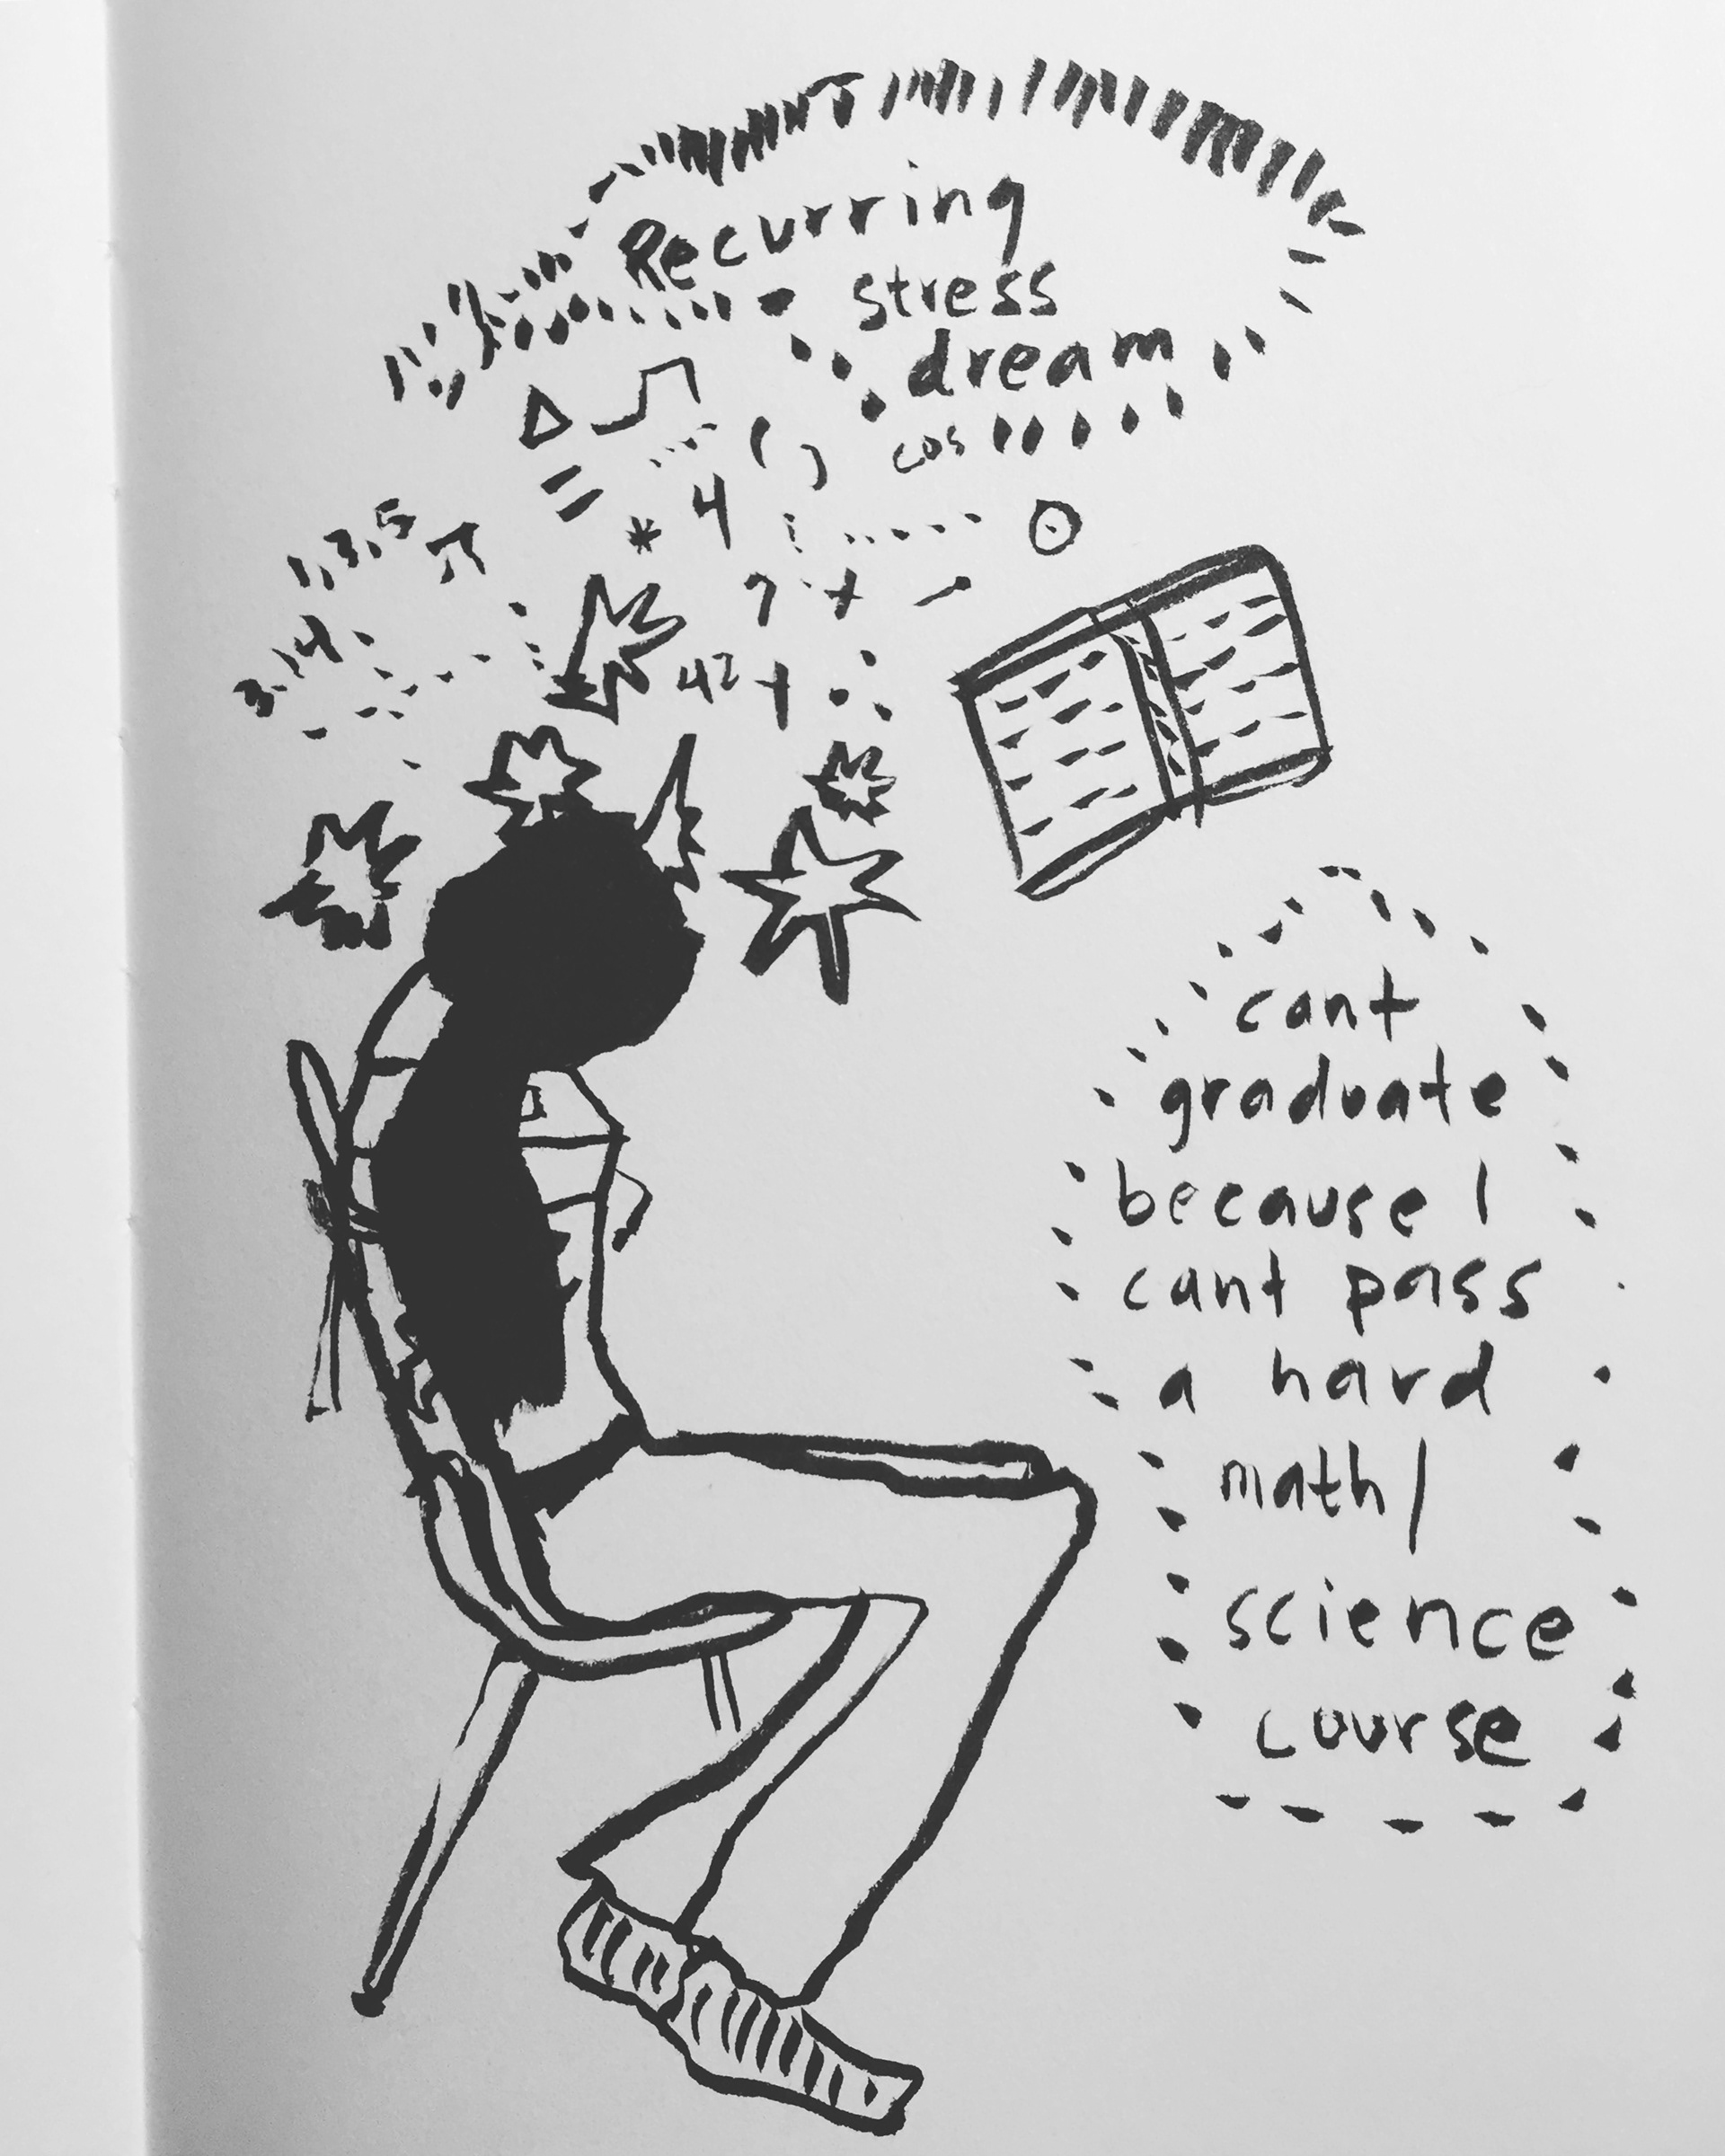 Recurring
stress
dream
cos
4
1, 3, 5 π
*
? + -
3.14
42 +
cant
graduate
because I
cant pass
a hard
math/
science
course